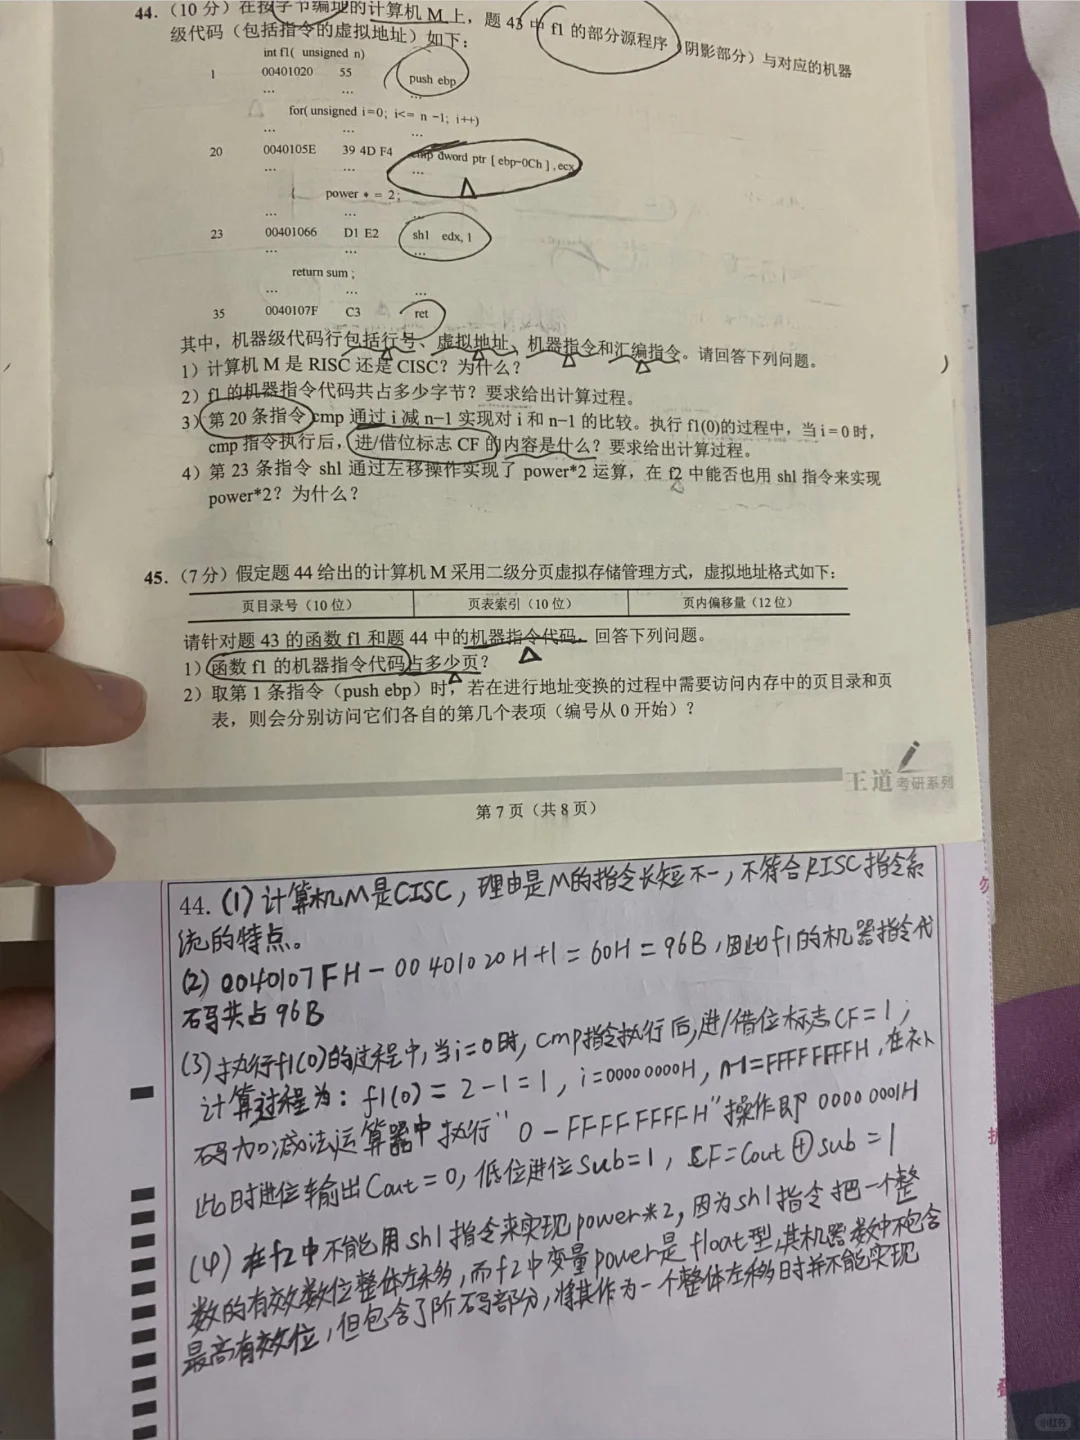 44.（10 分）在按字节编址的计算机 M 上，题 43 中 f1 的部分源程序（阴影部分）与对应的机器
级代码（包括指令的虚拟地址）如下：
int f1( unsigned n)
1 00401020 55 push ebp
… … …
for( unsigned i=0; i<= n −1; i++)
… … …
20 0040105E 39 4D F4 cmp dword ptr [ ebp−0Ch ] , ecx
… … …
{ power * = 2;
… … …
23 00401066 D1 E2 shl edx, 1
… … …
return sum ;
… … …
35 0040107F C3 ret
其中，机器级代码行包括行号、虚拟地址、机器指令和汇编指令。请回答下列问题。
1）计算机 M 是 RISC 还是 CISC？为什么？
2）f1 的机器指令代码共占多少字节？要求给出计算过程。
3）第 20 条指令 cmp 通过 i 减 n−1 实现对 i 和 n−1 的比较。执行 f1(0)的过程中，当 i = 0 时，
cmp 指令执行后，进/借位标志 CF 的内容是什么？要求给出计算过程。
4）第 23 条指令 shl 通过左移操作实现了 power*2 运算，在 f2 中能否也用 shl 指令来实现
power*2？为什么？
45.（7 分）假定题 44 给出的计算机 M 采用二级分页虚拟存储管理方式，虚拟地址格式如下：
页目录号（10 位） 页表索引（10 位） 页内偏移量（12 位）
请针对题 43 的函数 f1 和题 44 中的机器指令代码，回答下列问题。
1）函数 f1 的机器指令代码占多少页？
2）取第 1 条指令（push ebp）时，若在进行地址变换的过程中需要访问内存中的页目录和页
表，则会分别访问它们各自的第几个表项（编号从 0 开始）？
王道 考研系列
第 7 页（共 8 页）
44. (1) 计算机M是CISC，理由是M的指令长短不一，不符合RISC指令系
统的特点。
(2) 0040107FH - 00401020H+1 = 60H = 96B，因此f1的机器指令代
码共占96B
(3) 执行f1(0)的过程中，当i=0时，cmp指令执行后，进/借位标志CF=1；
计算过程为：f1(0) = 2-1=1，i=00000000H，n-1=FFFFFFFFH，在补
码加减法运算器中执行"0-FFFFFFFFH"操作即00000001H
此时进位输出Cout=0，低位进位Sub=1，CF=Cout⊕sub=1
(4) 在f2中不能用shl指令来实现power*2，因为shl指令把一个整
数的有效数位整体左移，而f2中变量power是float型，其机器数中不包含
最高有效位，但包含了阶码部分，将其作为一个整体左移时并不能实现
小红书